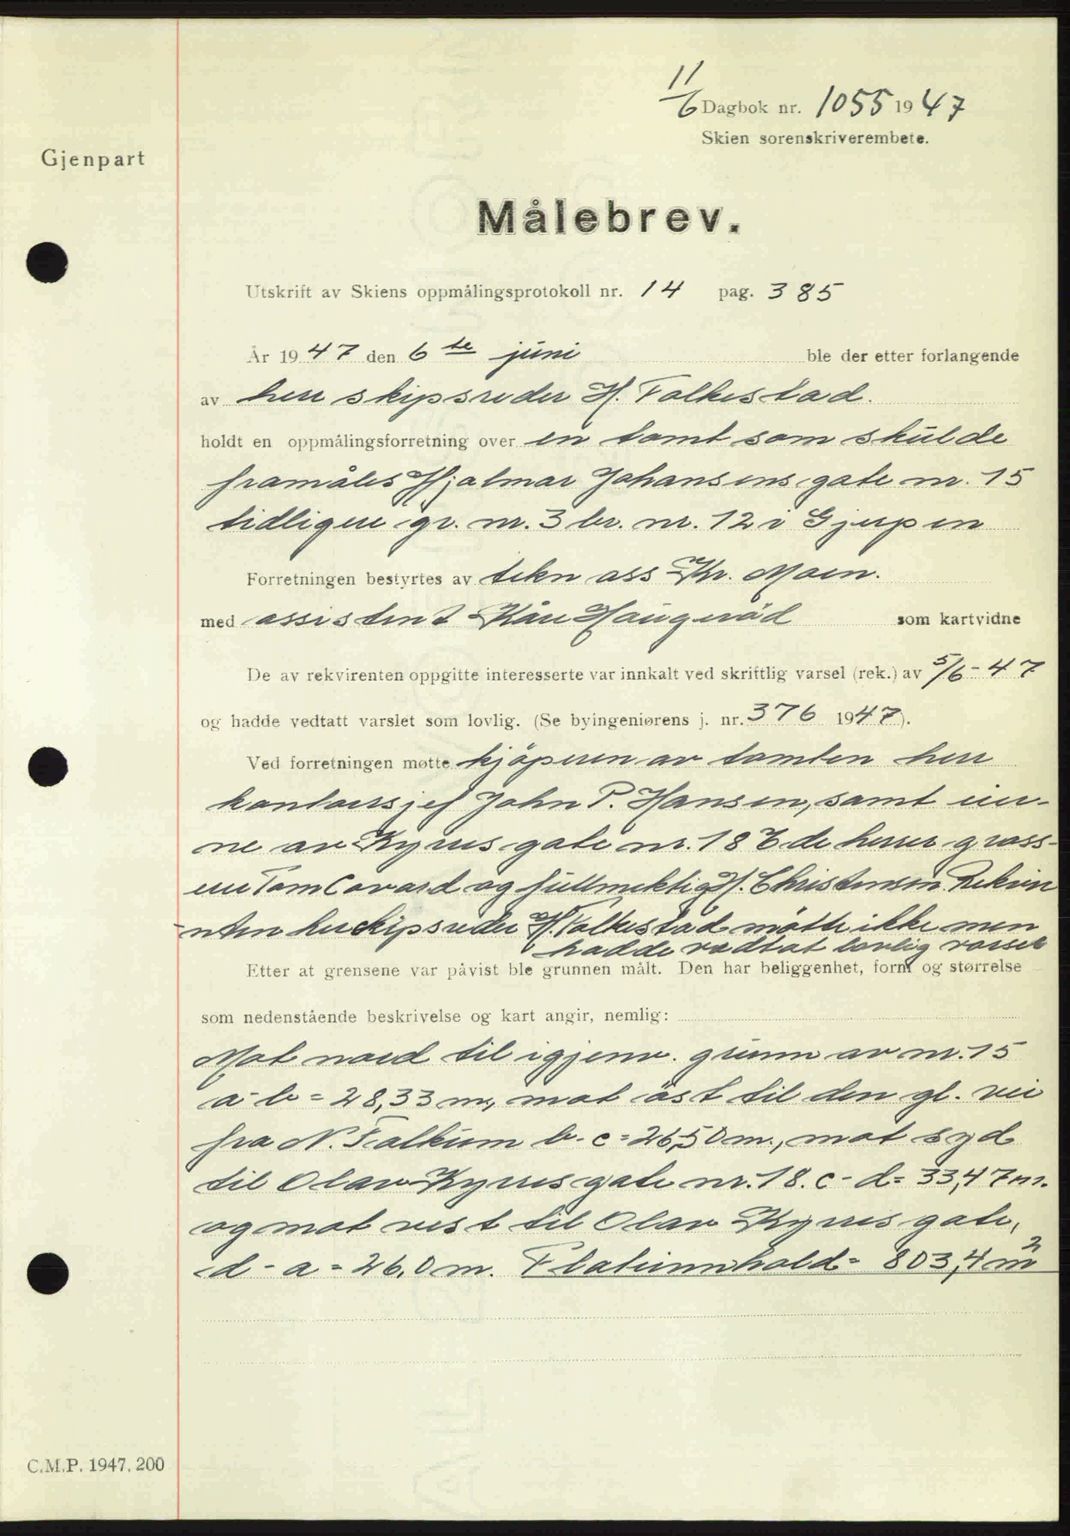 11/6 Dagbok nr. 1055 1947
Skien sorenskriverembete.
Gjenpart
Målebrev.
Utskrift av Skiens oppmålingsprotokoll nr. 14 pag. 385
År 1947 den 6te juni ble der etter forlangende
av herr skipsreder H. Falkestad.
holdt en oppmålingsforretning over en tomt som skulde
framåles Hjalmar Johansens gate nr. 15
tidligere gr. nr. 3 br. nr. 12 i Gjerpen
Forretningen bestyrtes av tekn ass Kr. Moen.
med assistent Kåre Haugerød som kartvidne
De av rekvirenten oppgitte interesserte var innkalt ved skriftlig varsel (rek.) av 5/6-47
og hadde vedtatt varslet som lovlig. (Se byingeniørens j. nr. 376 1947).
Ved forretningen møtte kjöperen av tomten herr
kontorsjef John P. Hansen, samt eier-
ne av Kyrres gate nr. 18 de herrer gross-
erer Tom Coward og fullmektig H. Christensen. Rekvir
enten herr skipsreder H. Falkestad mötte ikke men
hadde vedtat lovlig varsel
Etter at grensene var påvist ble grunnen målt. Den har beliggenhet, form og størrelse
som nedenstående beskrivelse og kart angir, nemlig:
Mot nord til igjenv. grunn av nr. 15
a-b = 28,33 m, mot öst til den gl. vei
fra N. Falkum b-c = 26,50 m., mot syd
til Olav Kyrres gate nr. 18. c-d = 33,47 m.
og mot vest til Olav Kyrres gate,
d-a = 26,0 m. Flateinnhold = 803,4 m²
C.M.P. 1947. 200